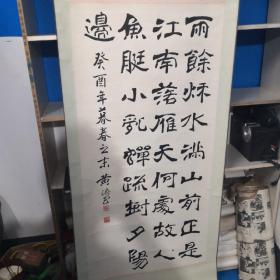 雨餘秌水满山前正是
江南落雁天何處故人
魚艇小亂蟬疏樹夕陽
邊
癸酉年暮春之末黄